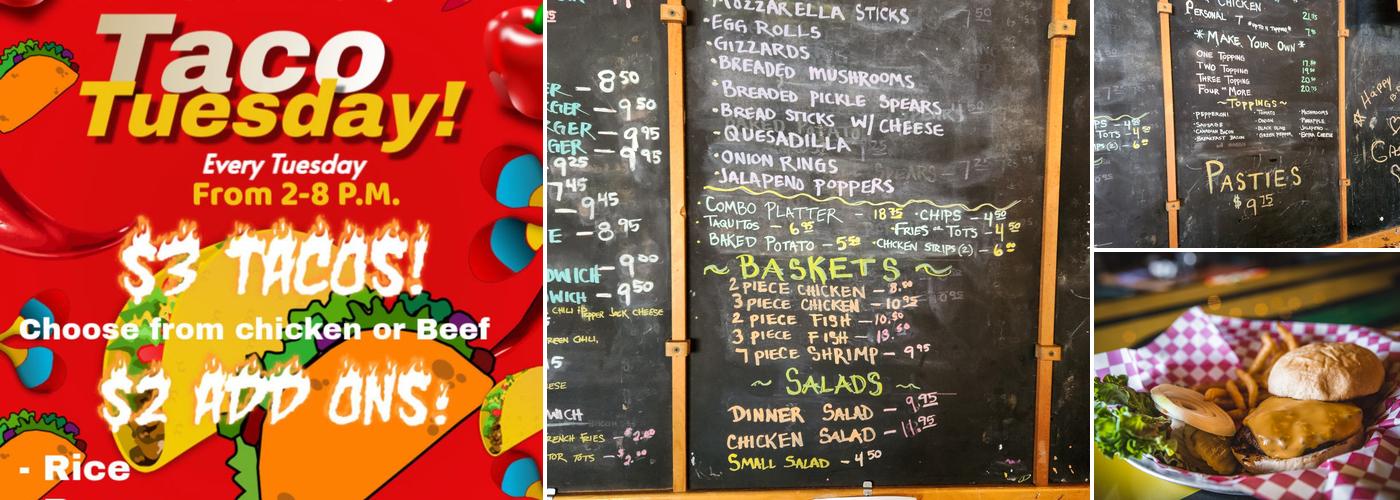 Taco
Tuesday!
Every Tuesday
From 2-8 P.M.
$3 TACOS!
Choose from chicken or Beef
$2 ADD ONS!
- Rice
8 50
9 50
9 95
9 95
9 25
7 45
9 45
8 95
9 00
9 50
CHILI PEPPER JACK CHEESE
GREEN CHILI,
FRENCH FRIES
MOZZARELLA STICKS
• EGG ROLLS
• GIZZARDS
• BREADED MUSHROOMS
• BREADED PICKLE SPEARS
• BREAD STICKS W/ CHEESE
• QUESADILLA
• ONION RINGS
• JALAPENO POPPERS
COMBO PLATTER - 18 75 • CHIPS - 4 50
TAQUITOS - 6 95 • FRIES or TOTS - 4 50
BAKED POTATO - 5 50 • CHICKEN STRIPS (2) - 6
~ BASKETS ~
2 PIECE CHICKEN - 8.50
3 PIECE CHICKEN - 10 95
2 PIECE FISH - 10.50
3 PIECE FISH - 13.50
7 PIECE SHRIMP - 9 95
~ SALADS ~
DINNER SALAD - 9.95
CHICKEN SALAD - 11.95
SMALL SALAD - 4 50
CHICKEN
PERSONAL 7"
* MAKE YOUR OWN *
ONE TOPPING
TWO TOPPING
THREE TOPPING
FOUR + MORE
~ TOPPINGS ~
• PEPPERONI • TOMATO • MUSHROOMS
• SAUSAGE • ONION • PINEAPPLE
• CANADIAN BACON • BLACK OLIVES • JALAPENO
• BREAKFAST BACON • GREEN PEPPER • EXTRA CHEESE
PASTIES
$ 9 75
Happy